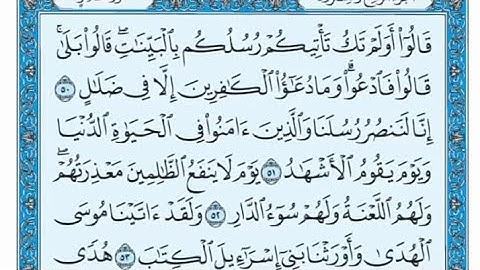 قَالُوٓاْ أَوَلَمْ تَكُ تَأْتِيكُمْ رُسُلُكُم بِٱلْبَيِّنَٰتِۖ قَالُواْ بَلَىٰۚ
قَالُواْ فَٱدْعُواْۗ وَمَا دُعَٰٓؤُاْ ٱلْكَٰفِرِينَ إِلَّا فِى ضَلَٰلٍ ٥٠
إِنَّا لَنَنصُرُ رُسُلَنَا وَٱلَّذِينَ ءَامَنُواْ فِى ٱلْحَيَوٰةِ ٱلدُّنْيَا
وَيَوْمَ يَقُومُ ٱلْأَشْهَٰدُ ٥١ يَوْمَ لَا يَنفَعُ ٱلظَّٰلِمِينَ مَعْذِرَتُهُمْۖ
وَلَهُمُ ٱللَّعْنَةُ وَلَهُمْ سُوٓءُ ٱلدَّارِ ٥٢ وَلَقَدْ ءَاتَيْنَا مُوسَى
ٱلْهُدَىٰ وَأَوْرَثْنَا بَنِىٓ إِسْرَٰٓءِيلَ ٱلْكِتَٰبَ ٥٣ هُدًى